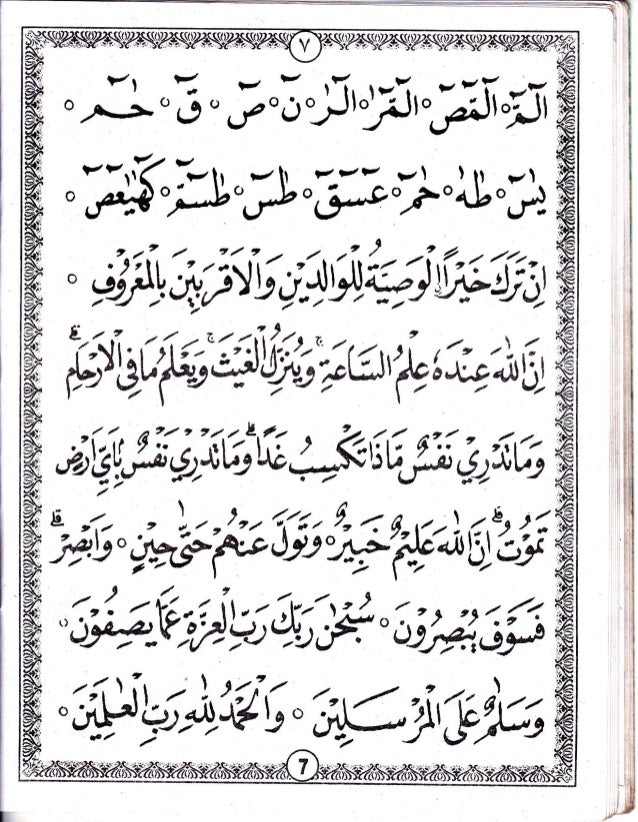 ٧
الٓمّٓ ۝ الٓمّٓصٓ ۝ الٓمّٓرٰ ۝ الٓرٰ ۝ نٓ ۝ صٓ ۝ قٓ ۝ حٰمٓ ۝
يٰسٓ ۝ طٰهٰ ۝ حٰمٓ ۝ عٓسٓقٓ ۝ طٰسٓ ۝ طٰسٓمّٓ ۝ كٓهٰيٰعٓصٓ ۝
اِنْ تَرَكَ خَيْرًا اۨلْوَصِيَّةُ لِلْوَالِدَيْنِ وَالْاَقْرَبِيْنَ بِالْمَعْرُوْفِ ۝
اِنَّ اللّٰهَ عِنْدَهٗ عِلْمُ السَّاعَةِ ۚ وَيُنَزِّلُ الْغَيْثَ ۚ وَيَعْلَمُ مَا فِى الْاَرْحَامِ ؕ
وَمَا تَدْرِيْ نَفْسٌ مَّاذَا تَكْسِبُ غَدًا ؕ وَمَا تَدْرِيْ نَفْسٌۢ بِاَيِّ اَرْضٍ
تَمُوْتُ ؕ اِنَّ اللّٰهَ عَلِيْمٌ خَبِيْرٌ ۝ وَتَوَلَّ عَنْهُمْ حَتّٰى حِيْنٍ ۝ وَاَبْصِرْ
فَسَوْفَ يُبْصِرُوْنَ ۝ سُبْحٰنَ رَبِّكَ رَبِّ الْعِزَّةِ عَمَّا يَصِفُوْنَ ۝
وَسَلٰمٌ عَلَى الْمُرْسَلِيْنَ ۝ وَالْحَمْدُ لِلّٰهِ رَبِّ الْعٰلَمِيْنَ ۝
7